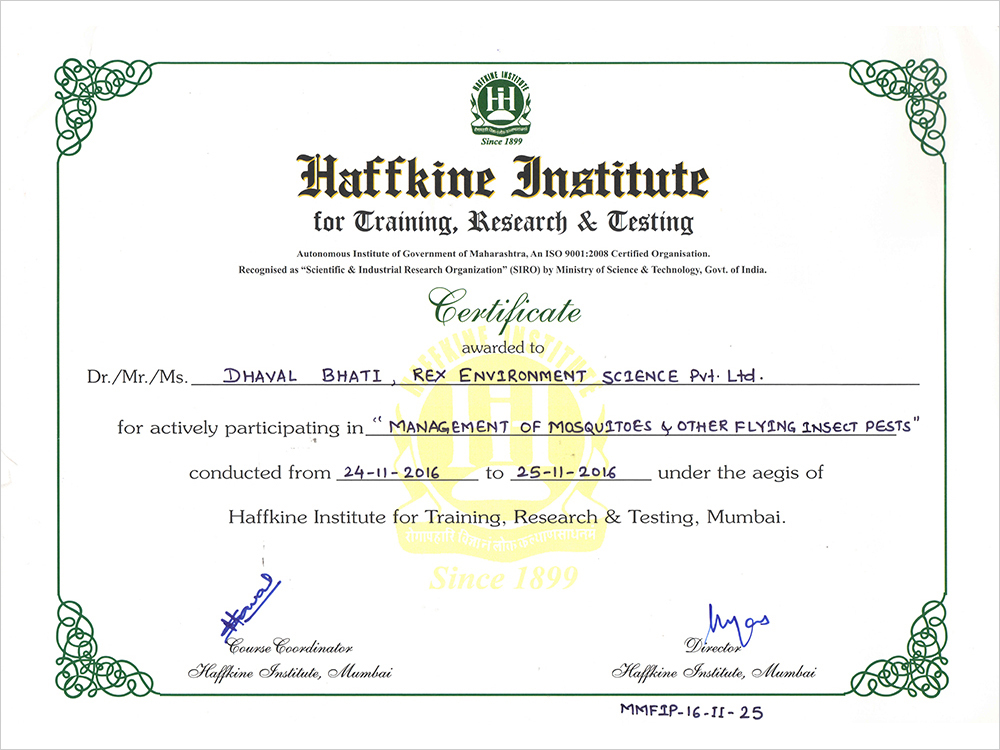 HAFFKINE INSTITUTE
HI
Since 1899
Haffkine Institute
for Training, Research & Testing
Autonomous Institute of Government of Maharashtra, An ISO 9001:2008 Certified Organisation.
Recognised as “Scientific & Industrial Research Organization” (SIRO) by Ministry of Science & Technology, Govt. of India.
Certificate
awarded to
Dr./Mr./Ms. DHAVAL BHATI, REX ENVIRONMENT SCIENCE Pvt. Ltd.
for actively participating in “MANAGEMENT OF MOSQUITOES & OTHER FLYING INSECT PESTS”
conducted from 24-11-2016 to 25-11-2016 under the aegis of
Haffkine Institute for Training, Research & Testing, Mumbai.
HAFFKINE INSTITUTE
HI
Since 1899
Course Coordinator
Haffkine Institute, Mumbai
Director
Haffkine Institute, Mumbai
MMFIP-16-II-25